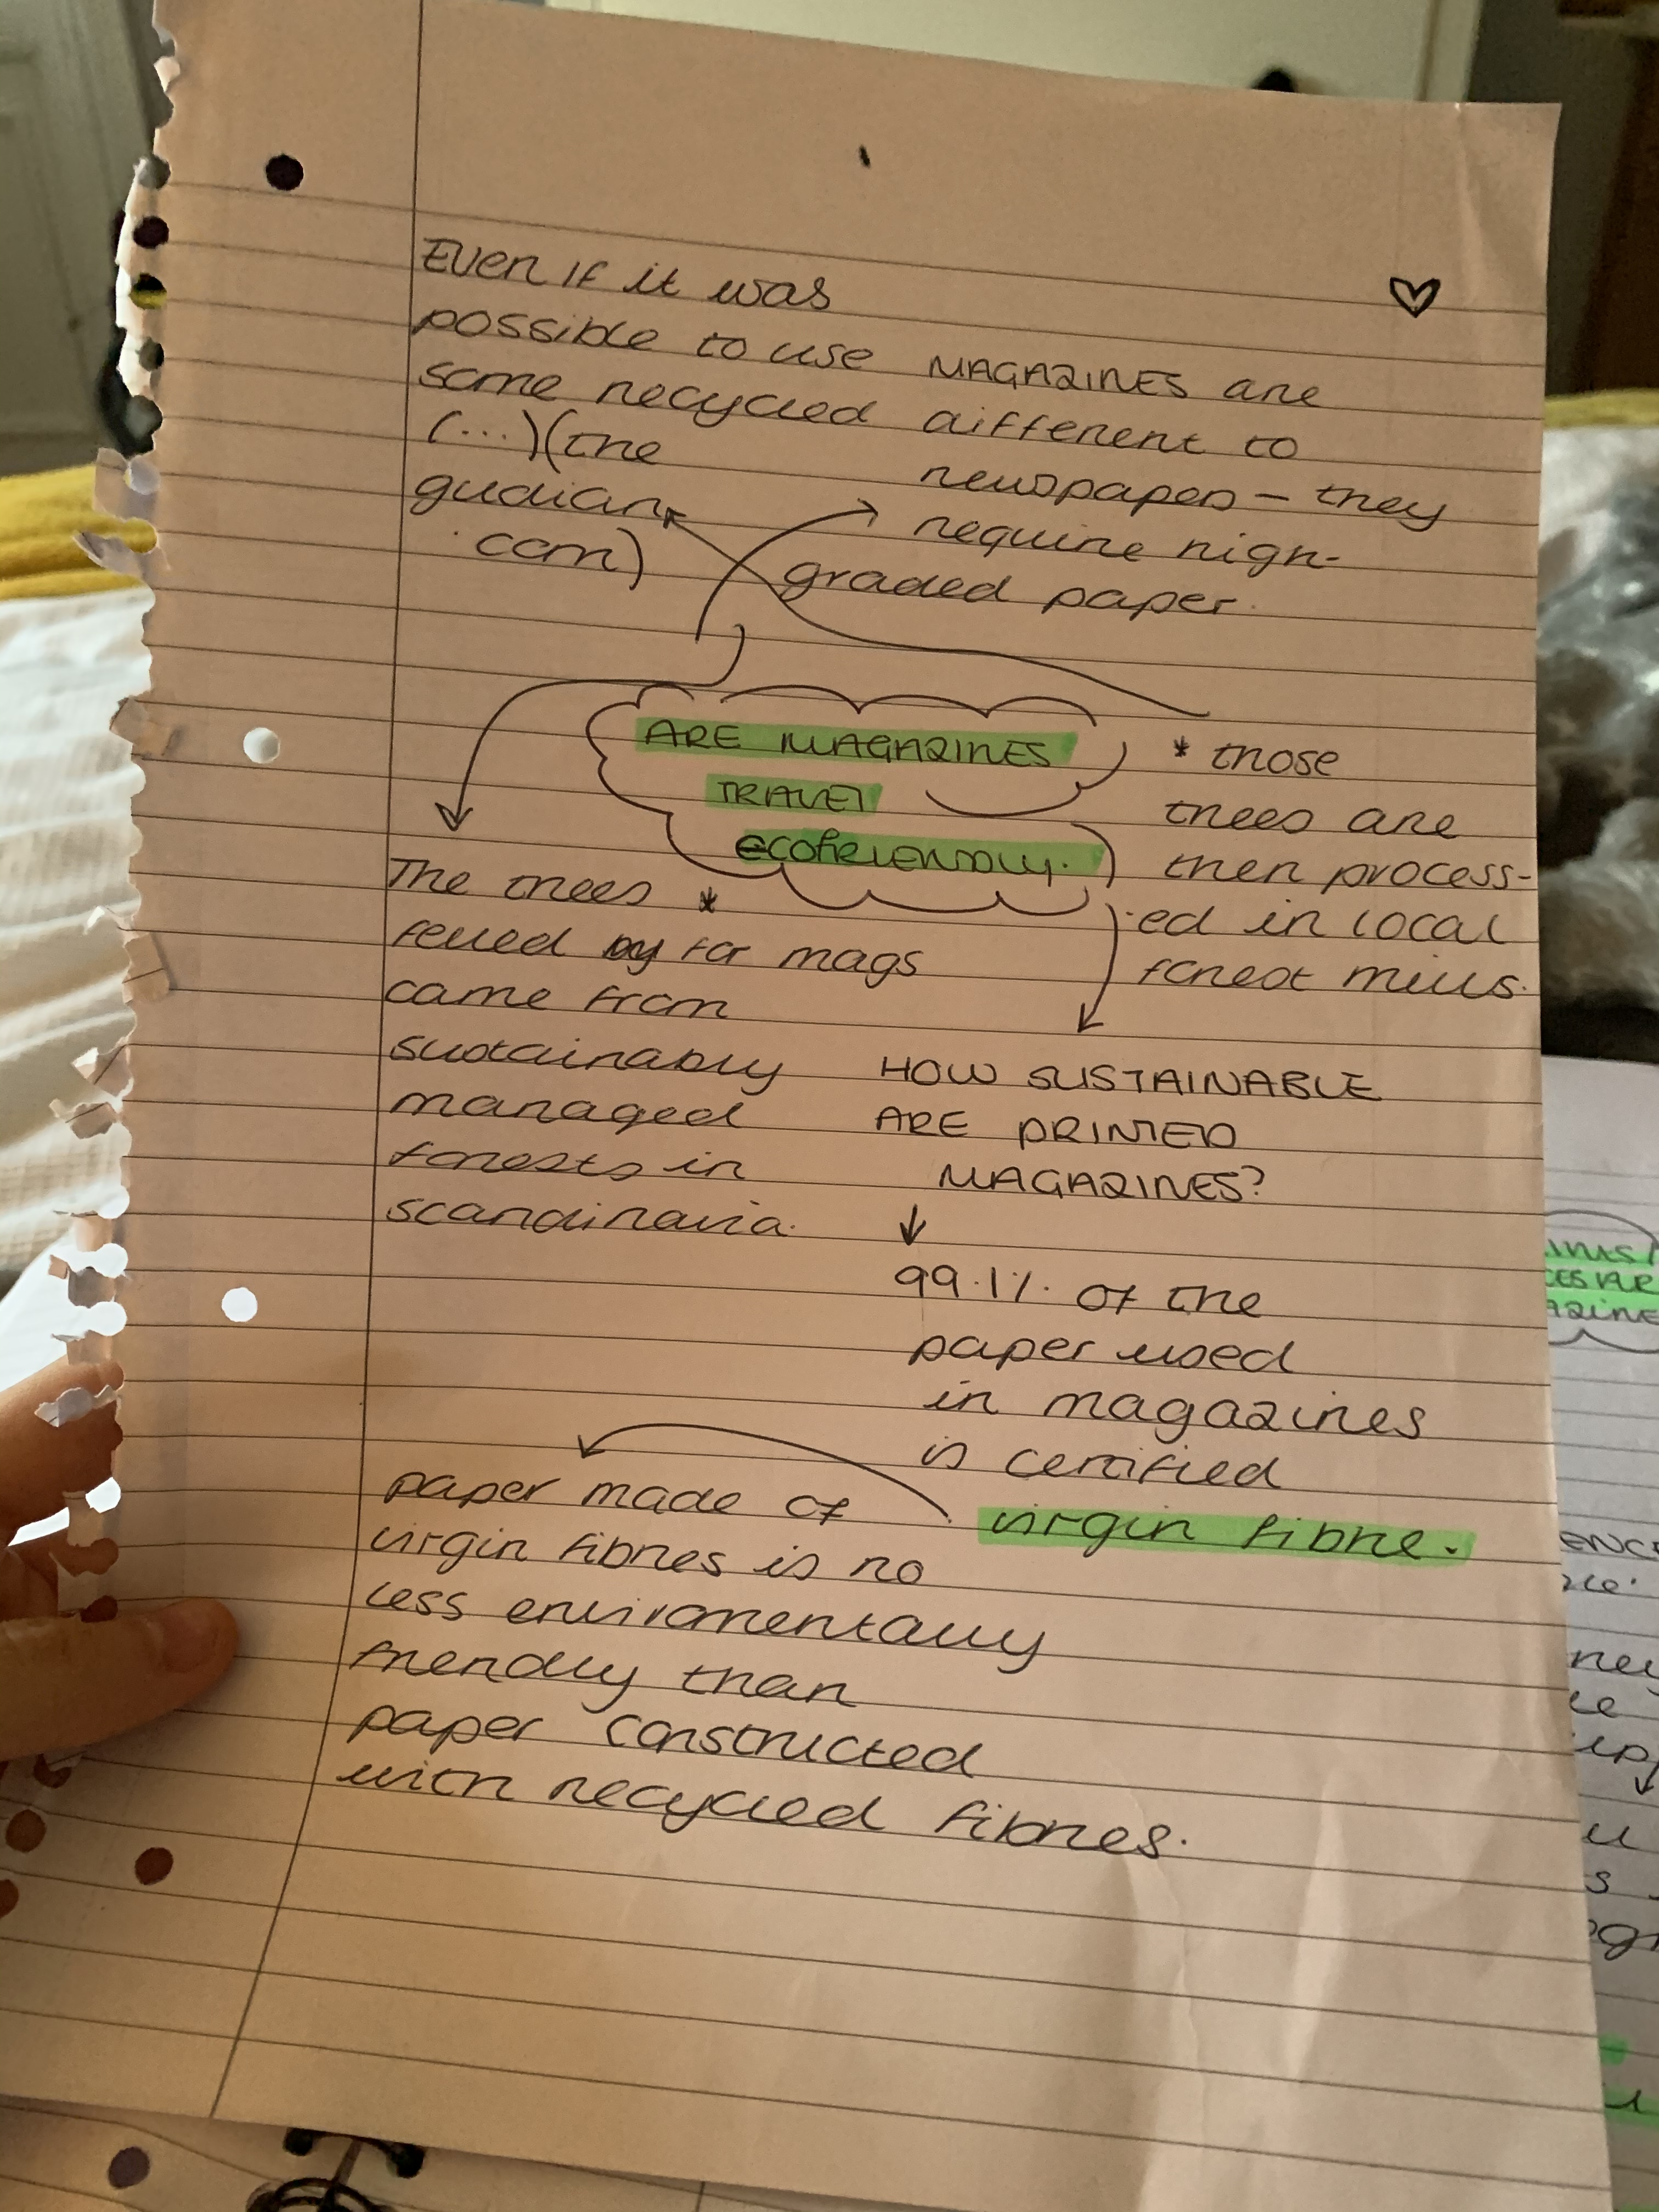 Even if it was
possible to use
some recycled
(...)(the
gudian
.com)
MAGAZINES are
different to
newspapers – they
require high-
graded paper.
ARE MAGAZINES
TRAVEL
ecofRIENDLY.
* those
trees are
then process-
ed in local
forest mills.
The trees *
felled by for mags
came from
sustainably
managed
forests in
scandinavia.
HOW SUSTAINABLE
ARE PRINTED
MAGAZINES?
99.1% of the
paper used
in magazines
is certified
virgin fibre.
paper made of
virgin fibres is no
less enviromentally
friendly than
paper constructed
with recycled fibres.